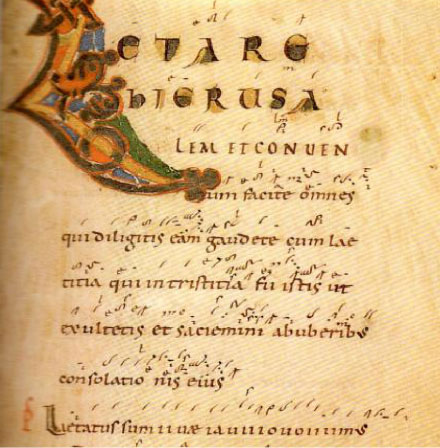 LETARE
hIERUSA
LEM ET CONVEN
tum facite omnes
qui diligitis eam gaudete cum lae
titia qui in tristitia fu istis ut
exultetis et saciemini abuberibus
consolatio nis eius
Laetatus sum